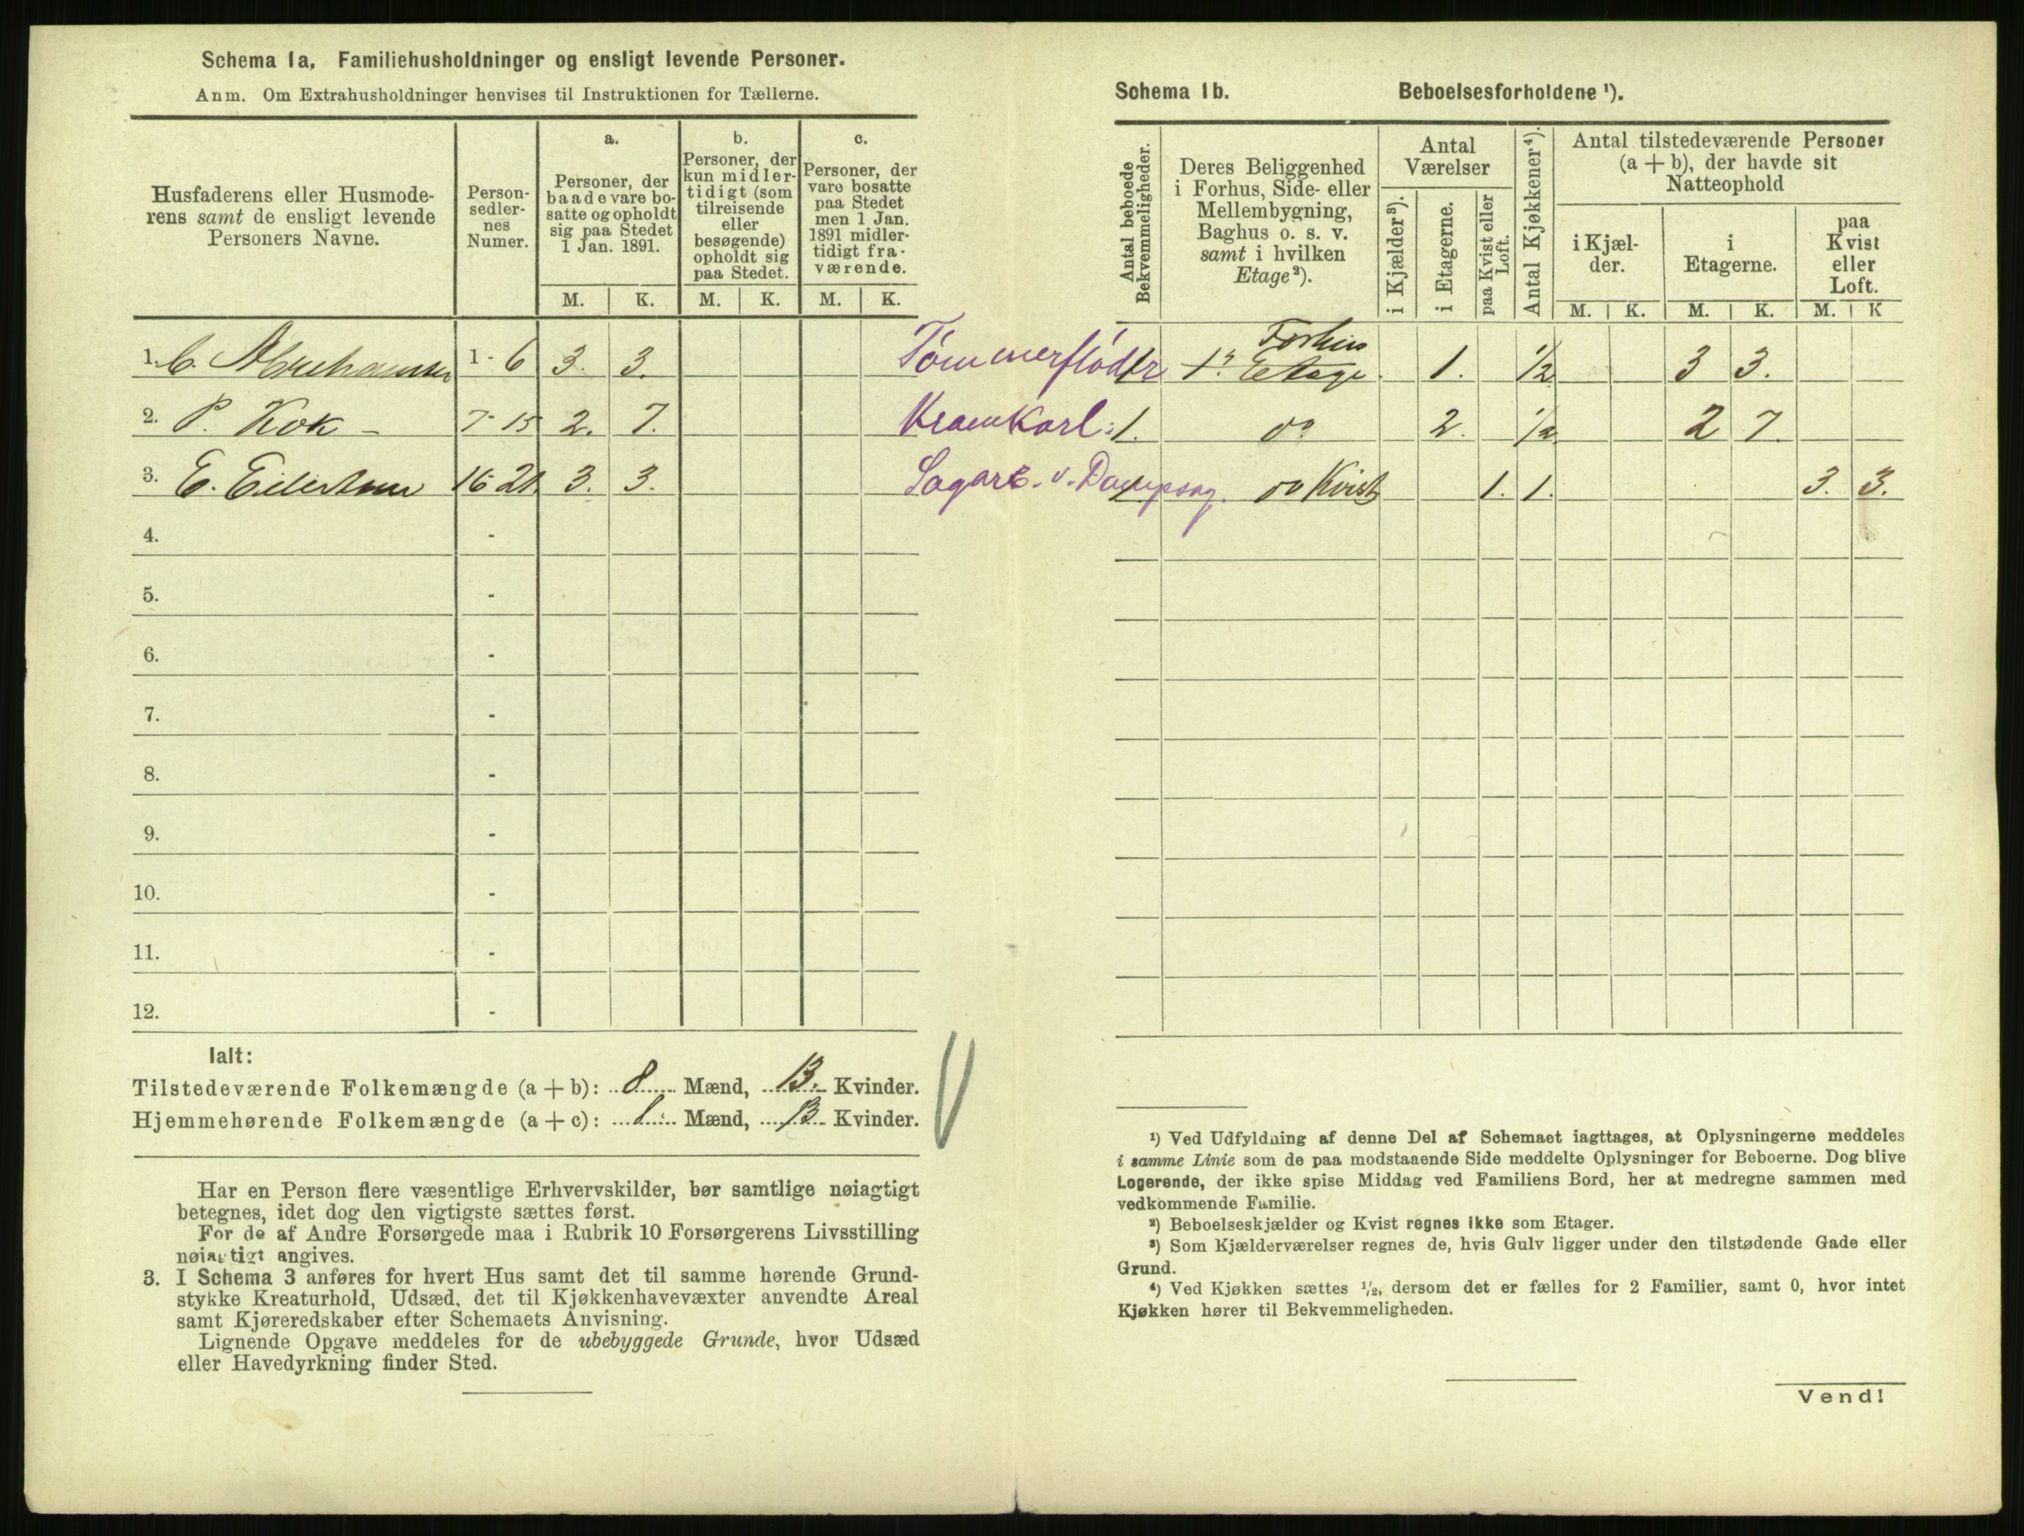 Schema 1a, Familiehusholdninger og ensligt levende Personer.
Anm. Om Extrahusholdninger henvises til Instruktionen for Tællerne.
Husfaderens eller Husmode-
rens samt de ensligt levende
Personers Navne.
Person-
sedler-
nes
Numer.
a.
Personer, der
baade vare bo-
satte og opholdt
sig paa Stedet
1 Jan. 1891.
b.
Personer, der
kun midler-
tidigt (som
tilreisende
eller
besøgende)
opholdt sig
paa Stedet.
c.
Personer, der
vare bosatte
paa Stedet
men 1 Jan.
1891 midler-
tidigt fra-
værende.
M. K. M. K. M. K.
1. C. Abrahamsen 1 - 6 3. 3.
2. P. Kok - 7 - 15 2. 7.
3. E. Eilertsen 16 21. 3. 3.
4. -
5. -
6. -
7. -
8. -
9. -
10. -
11. -
12. -
Ialt:
Tilstedeværende Folkemængde (a + b): 8 Mænd, 13. Kvinder.
Hjemmehørende Folkemængde (a + c): Mænd, 13 Kvinder.
Har en Person flere væsentlige Erhvervskilder, bør samtlige nøiagtigt
betegnes, idet dog den vigtigste sættes først.
For de af Andre Forsørgede maa i Rubrik 10 Forsørgerens Livsstilling
nøiagtigt angives.
3. I Schema 3 anføres for hvert Hus samt det til samme hørende Grund-
stykke Kreaturhold, Udsæd, det til Kjøkkenhavevæxter anvendte Areal
samt Kjøreredskaber efter Schemaets Anvisning.
Lignende Opgave meddeles for de ubebyggede Grunde, hvor Udsæd
eller Havedyrkning finder Sted.
Schema 1b. Beboelsesforholdene ¹).
Antal beboede
Bekvemmeligheder.
Deres Beliggenhed
i Forhus, Side- eller
Mellembygning,
Baghus o. s. v.
samt i hvilken
Etage²).
Antal
Værelser
i Kjælder³).
i Etagerne.
paa Kvist eller
Loft.
Antal Kjøkkener⁴).
Antal tilstedeværende Personer
(a + b), der havde sit
Natteophold
i Kjæl-
der.
i
Etagerne.
paa
Kvist
eller
Loft.
M. K. M. K. M. K
Tømmerfløder 1 Forhus
1ste Etage. 1. ½ 3 3.
Kramkarl: 1. do 2. ½ 2 7.
Sagarb. v. Dampsag. 1 do Kvist 1. 1. 3. 3.
¹) Ved Udfyldning af denne Del af Schemaet iagttages, at Oplysningerne meddeles
i samme Linie som de paa modstaaende Side meddelte Oplysninger for Beboerne. Dog blive
Logerende, der ikke spise Middag ved Familiens Bord, her at medregne sammen med
vedkommende Familie.
²) Beboelseskjælder og Kvist regnes ikke som Etager.
³) Som Kjælderværelser regnes de, hvis Gulv ligger under den tilstødende Gade eller
Grund.
⁴) Ved Kjøkken sættes ½, dersom det er fælles for 2 Familier, samt 0, hvor intet
Kjøkken hører til Bekvemmeligheden.
Vend!